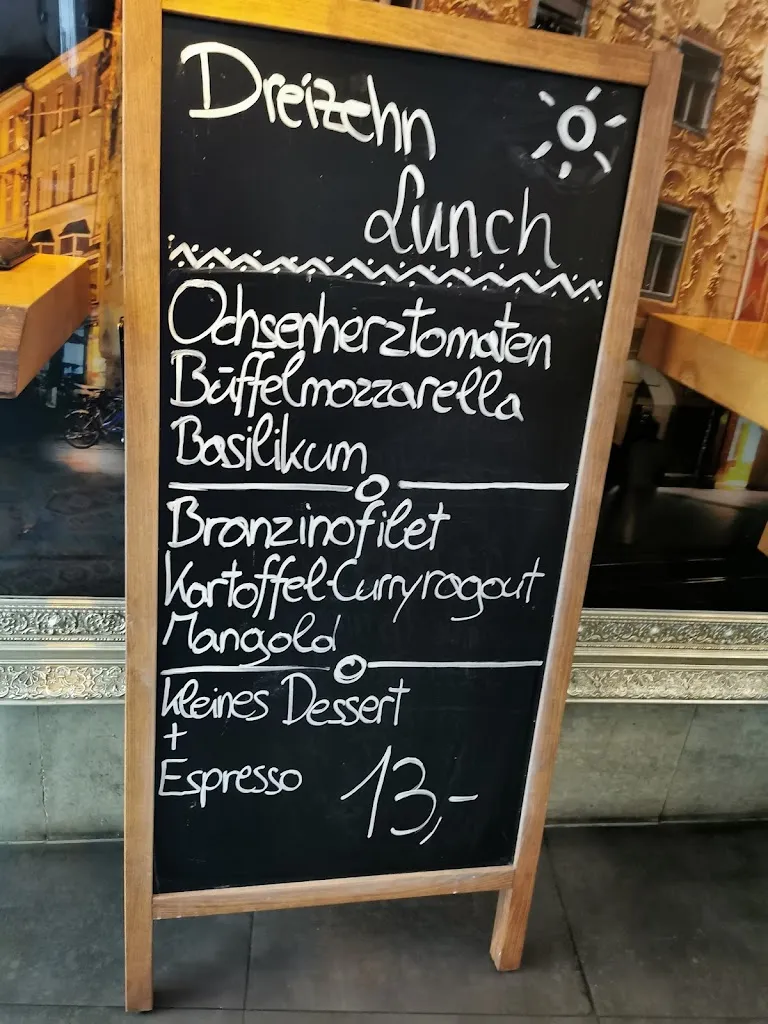 Dreizehn
Lunch
Ochsenherztomaten
Büffelmozzarella
Basilikum
Bronzinofilet
Kartoffel-Curryragout
Mangold
kleines Dessert
+
Espresso 13,-